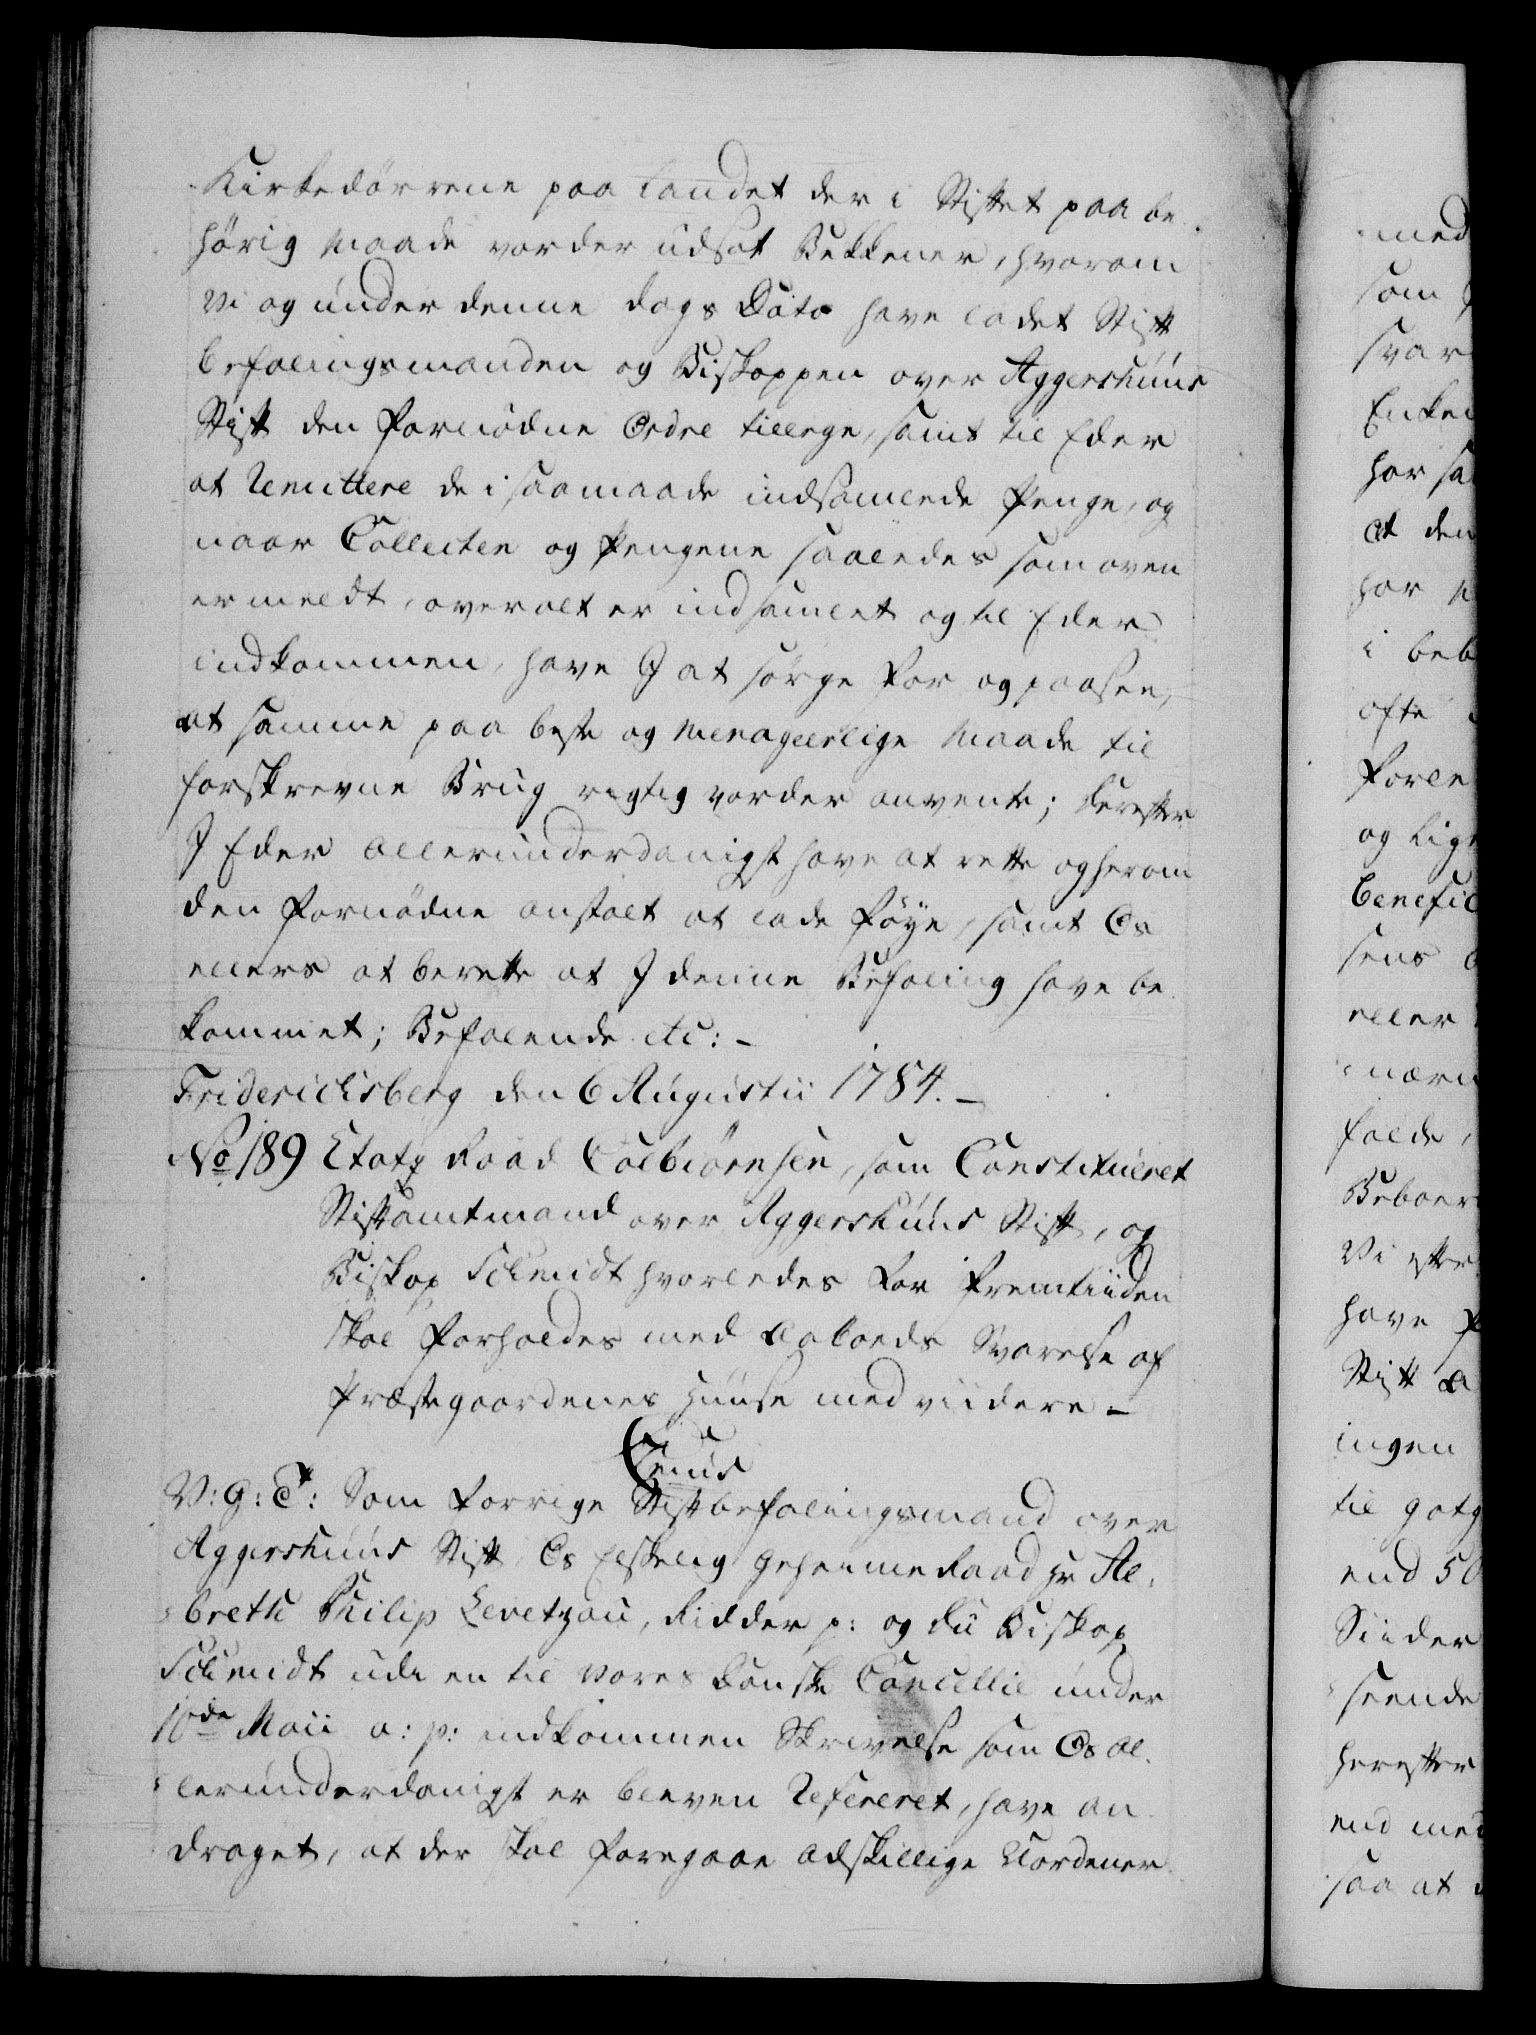 Kirkedörrene paa Landet der i Stiftet paa be-
hörig Maade vorder udsat Bekkener, hvorom
Vi og under denne Dags Dato have ladet Stift
befalingsmanden og Biskoppen over Aggershuus
Stift den fornödne Ordre tillege, samt til Eder
at Remittere de i saa maade indsamlede Penge, og
naar Collecten og Pengene saaledes som oven
ermeldt, overalt er indsamlet og til Eder
indkommen, have I at sörge for og paasee,
at samme paa beste og menageerlige Maade til
forskrevne Brug rigtig vorder anvendt; Derefter
I Eder allerunderdanigst have at rette og herom
den fornödne anstalt at lade föye, samt Os
ellers at berette at I denne Befaling have be-
kommet; Befalende etc: -
Friderichsberg den 6 Augustii 1784. -
No 189 Etatz Raad Colbiörnsen, som Constitueret
Stiftamtmand over Aggershuus Stift, og
Biskop Schmidt hvorledes for Fremtiiden
skal forholdes med Aaboeds Svarelse af
Præstegaardenes Huuse med viidere -
V: G: T: Som forrige Stiftbefalingsmand over
Aggershuus Stift Os Elskelig Geheime Raad Hr Al-
breth Philip Levetzau, Ridder p: og du Biskop
Schmidt udi en til Vores Danske Cancellie under
10de Maii a: p: indkommen Skrivelse som Os al-
lerunderdanigst er bleven Refereret, have an-
draget, at der skal foregaae adskillige Uordener
med
som
svar
Enke
har sa
at den
har
i beb
ofte
fore
og lig
benefic
sens
eller
nærv
falde,
Beboer
Vi efter
have
Stift
ingen
til gotg
end 50
Siider
seende
herefter
end med
saa at